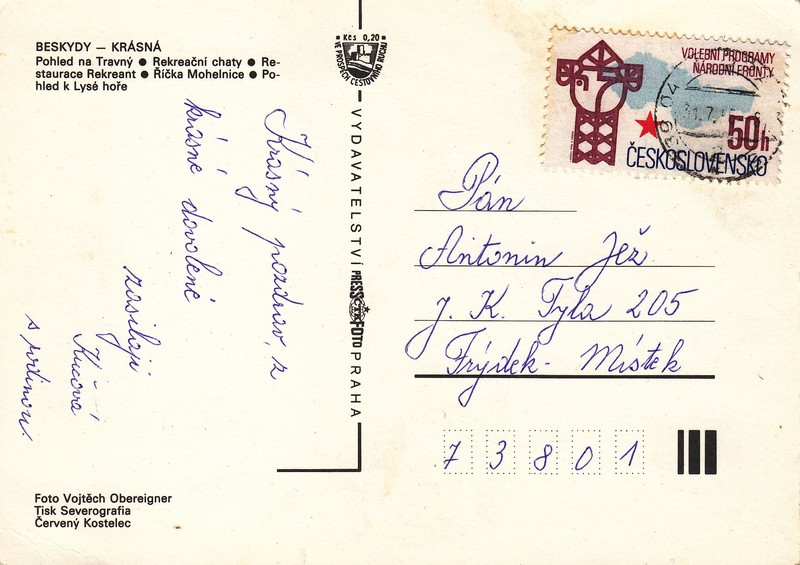 BESKYDY – KRÁSNÁ
Pohled na Travný ● Rekreační chaty ● Re-
staurace Rekreant ● Říčka Mohelnice ● Po-
hled k Lysé hoře
Kčs 0,20
VE PROSPĚCH CESTOVNÍHO RUCHU
VOLEBNÍ PROGRAMY
NÁRODNÍ FRONTY
50h
ČESKOSLOVENSKO
VYDAVATELSTVÍ PRESSFOTO PRAHA
Krásný pozdrav z
krásné dovolené
zasílají
s rodinou.
Pán
Antonin Jež
J. K. Tyla 205
Frýdek - Místek
7 3 8 0 1
Foto Vojtěch Obereigner
Tisk Severografia
Červený Kostelec